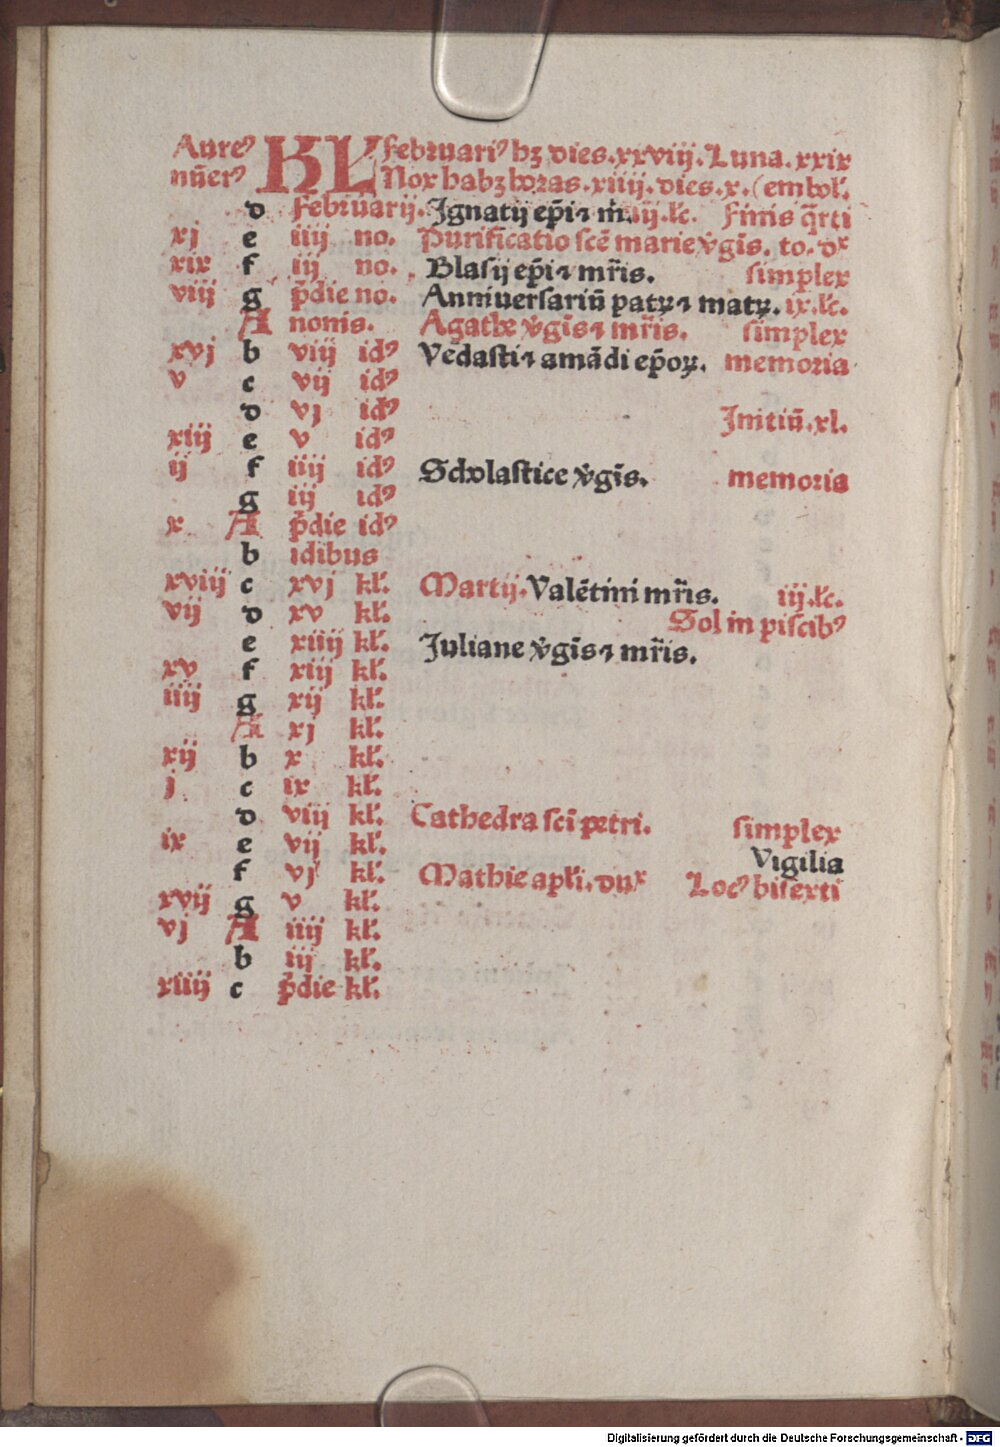 Aureꝰ KL februariꝰ hꝫ dies.xxviij.Luna.xxix
nūerꝰ Nox habꝫ horas.xiiij.dies.x.(embol'.
d februarij. Ignatij ep̄i ⁊ m̄. iij.lc̄. Finis q̄rti
xj e iiij no. Purificatio scē marie v̄gīs. to. dx
xix f iij no. Blasij ep̄i ⁊ mr̄is. simplex
viij g p̄die no. Anniuersariū patꝝ ⁊ matꝝ. ix.lc̄.
A nonis. Agathe v̄gīs ⁊ mr̄is. simplex
xvj b viij idꝰ Vedasti ⁊ amādi ep̄oꝝ. memoria
v c vij idꝰ
d vj idꝰ Initiū.xl.
xiij e v idꝰ
ij f iiij idꝰ Scholastice v̄gīs. memoria
g iij idꝰ
x A p̄die idꝰ
b idibus
xviij c xvj kl'. Martij. Valētini mr̄is. iij.lc̄.
vij d xv kl'. Sol in piscibꝰ
e xiiij kl'. Juliane v̄gīs ⁊ mr̄is.
xv f xiij kl'.
iiij g xij kl'.
A xj kl'.
xij b x kl'.
j c ix kl'.
d viij kl'. Cathedra scī petri. simplex
ix e vij kl'. Vigilia
f vj kl'. Mathie apl'i. dux Locꝰ bisexti
xvij g v kl'.
vj A iiij kl'.
b iij kl'.
xiiij c p̄die kl'.
Digitalisierung gefördert durch die Deutsche Forschungsgemeinschaft - DFG